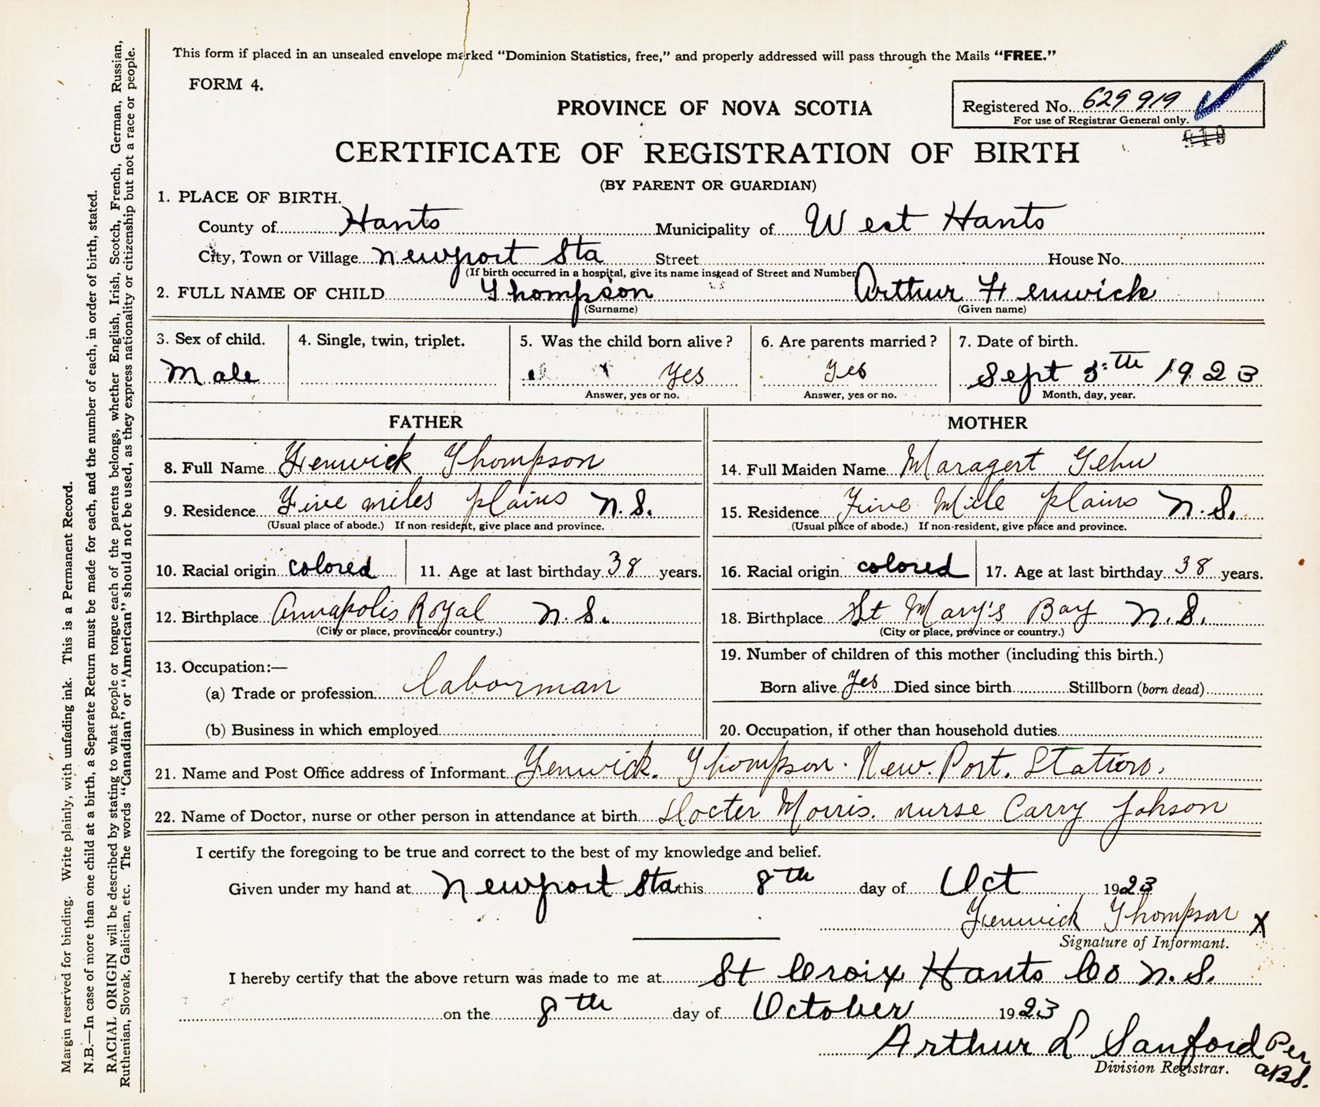 This form if placed in an unsealed envelope marked "Dominion Statistics, free," and properly addressed will pass through the Mails "FREE."
FORM 4.
PROVINCE OF NOVA SCOTIA
Registered No. 629 919
For use of Registrar General only.
919
CERTIFICATE OF REGISTRATION OF BIRTH
(BY PARENT OR GUARDIAN)
1. PLACE OF BIRTH.
County of Hants Municipality of West Hants
City, Town or Village Newport Sta Street House No.
(If birth occurred in a hospital, give its name instead of Street and Number)
2. FULL NAME OF CHILD Thompson Arthur Fenwick
(Surname) (Given name)
3. Sex of child. 4. Single, twin, triplet. 5. Was the child born alive? 6. Are parents married? 7. Date of birth.
Male Yes Yes Sept 5th 1923
Answer, yes or no. Answer, yes or no. Month, day, year.
FATHER MOTHER
8. Full Name Fenwick Thompson 14. Full Maiden Name Maragert
9. Residence Five miles plains N.S. 15. Residence Five Mile plains N.S.
(Usual place of abode.) If non-resident, give place and province. (Usual place of abode.) If non-resident, give place and province.
10. Racial origin colored 11. Age at last birthday 38 years. 16. Racial origin colored 17. Age at last birthday 38 years.
12. Birthplace Annapolis Royal N.S. 18. Birthplace St Mary's Bay N.S.
(City or place, province or country.) (City or place, province or country.)
13. Occupation:— 19. Number of children of this mother (including this birth.)
(a) Trade or profession laborman Born alive Yes Died since birth Stillborn (born dead)
(b) Business in which employed 20. Occupation, if other than household duties
21. Name and Post Office address of Informant Fenwick. Thompson. New. Port. Station.
22. Name of Doctor, nurse or other person in attendance at birth Docter Morris. nurse Carry Johson
I certify the foregoing to be true and correct to the best of my knowledge and belief.
Given under my hand at Newport Sta this 8th day of Oct 1923
Fenwick Thompson X
Signature of Informant.
I hereby certify that the above return was made to me at St Croix Hants Co N.S.
on the 8th day of October 1923
Arthur L Sanford Per
Division Registrar. ABS.
Margin reserved for binding. Write plainly, with unfading ink. This is a Permanent Record.
N.B.—In case of more than one child at a birth, a Separate Return must be made for each, and the number of each, in order of birth, stated.
RACIAL ORIGIN will be described by stating to what people or tongue each of the parents belongs, whether English, Irish, Scotch, French, German, Russian,
Ruthenian, Slovak, Galician, etc. The words "Canadian" or "American" should not be used, as they express nationality or citizenship but not a race or people.